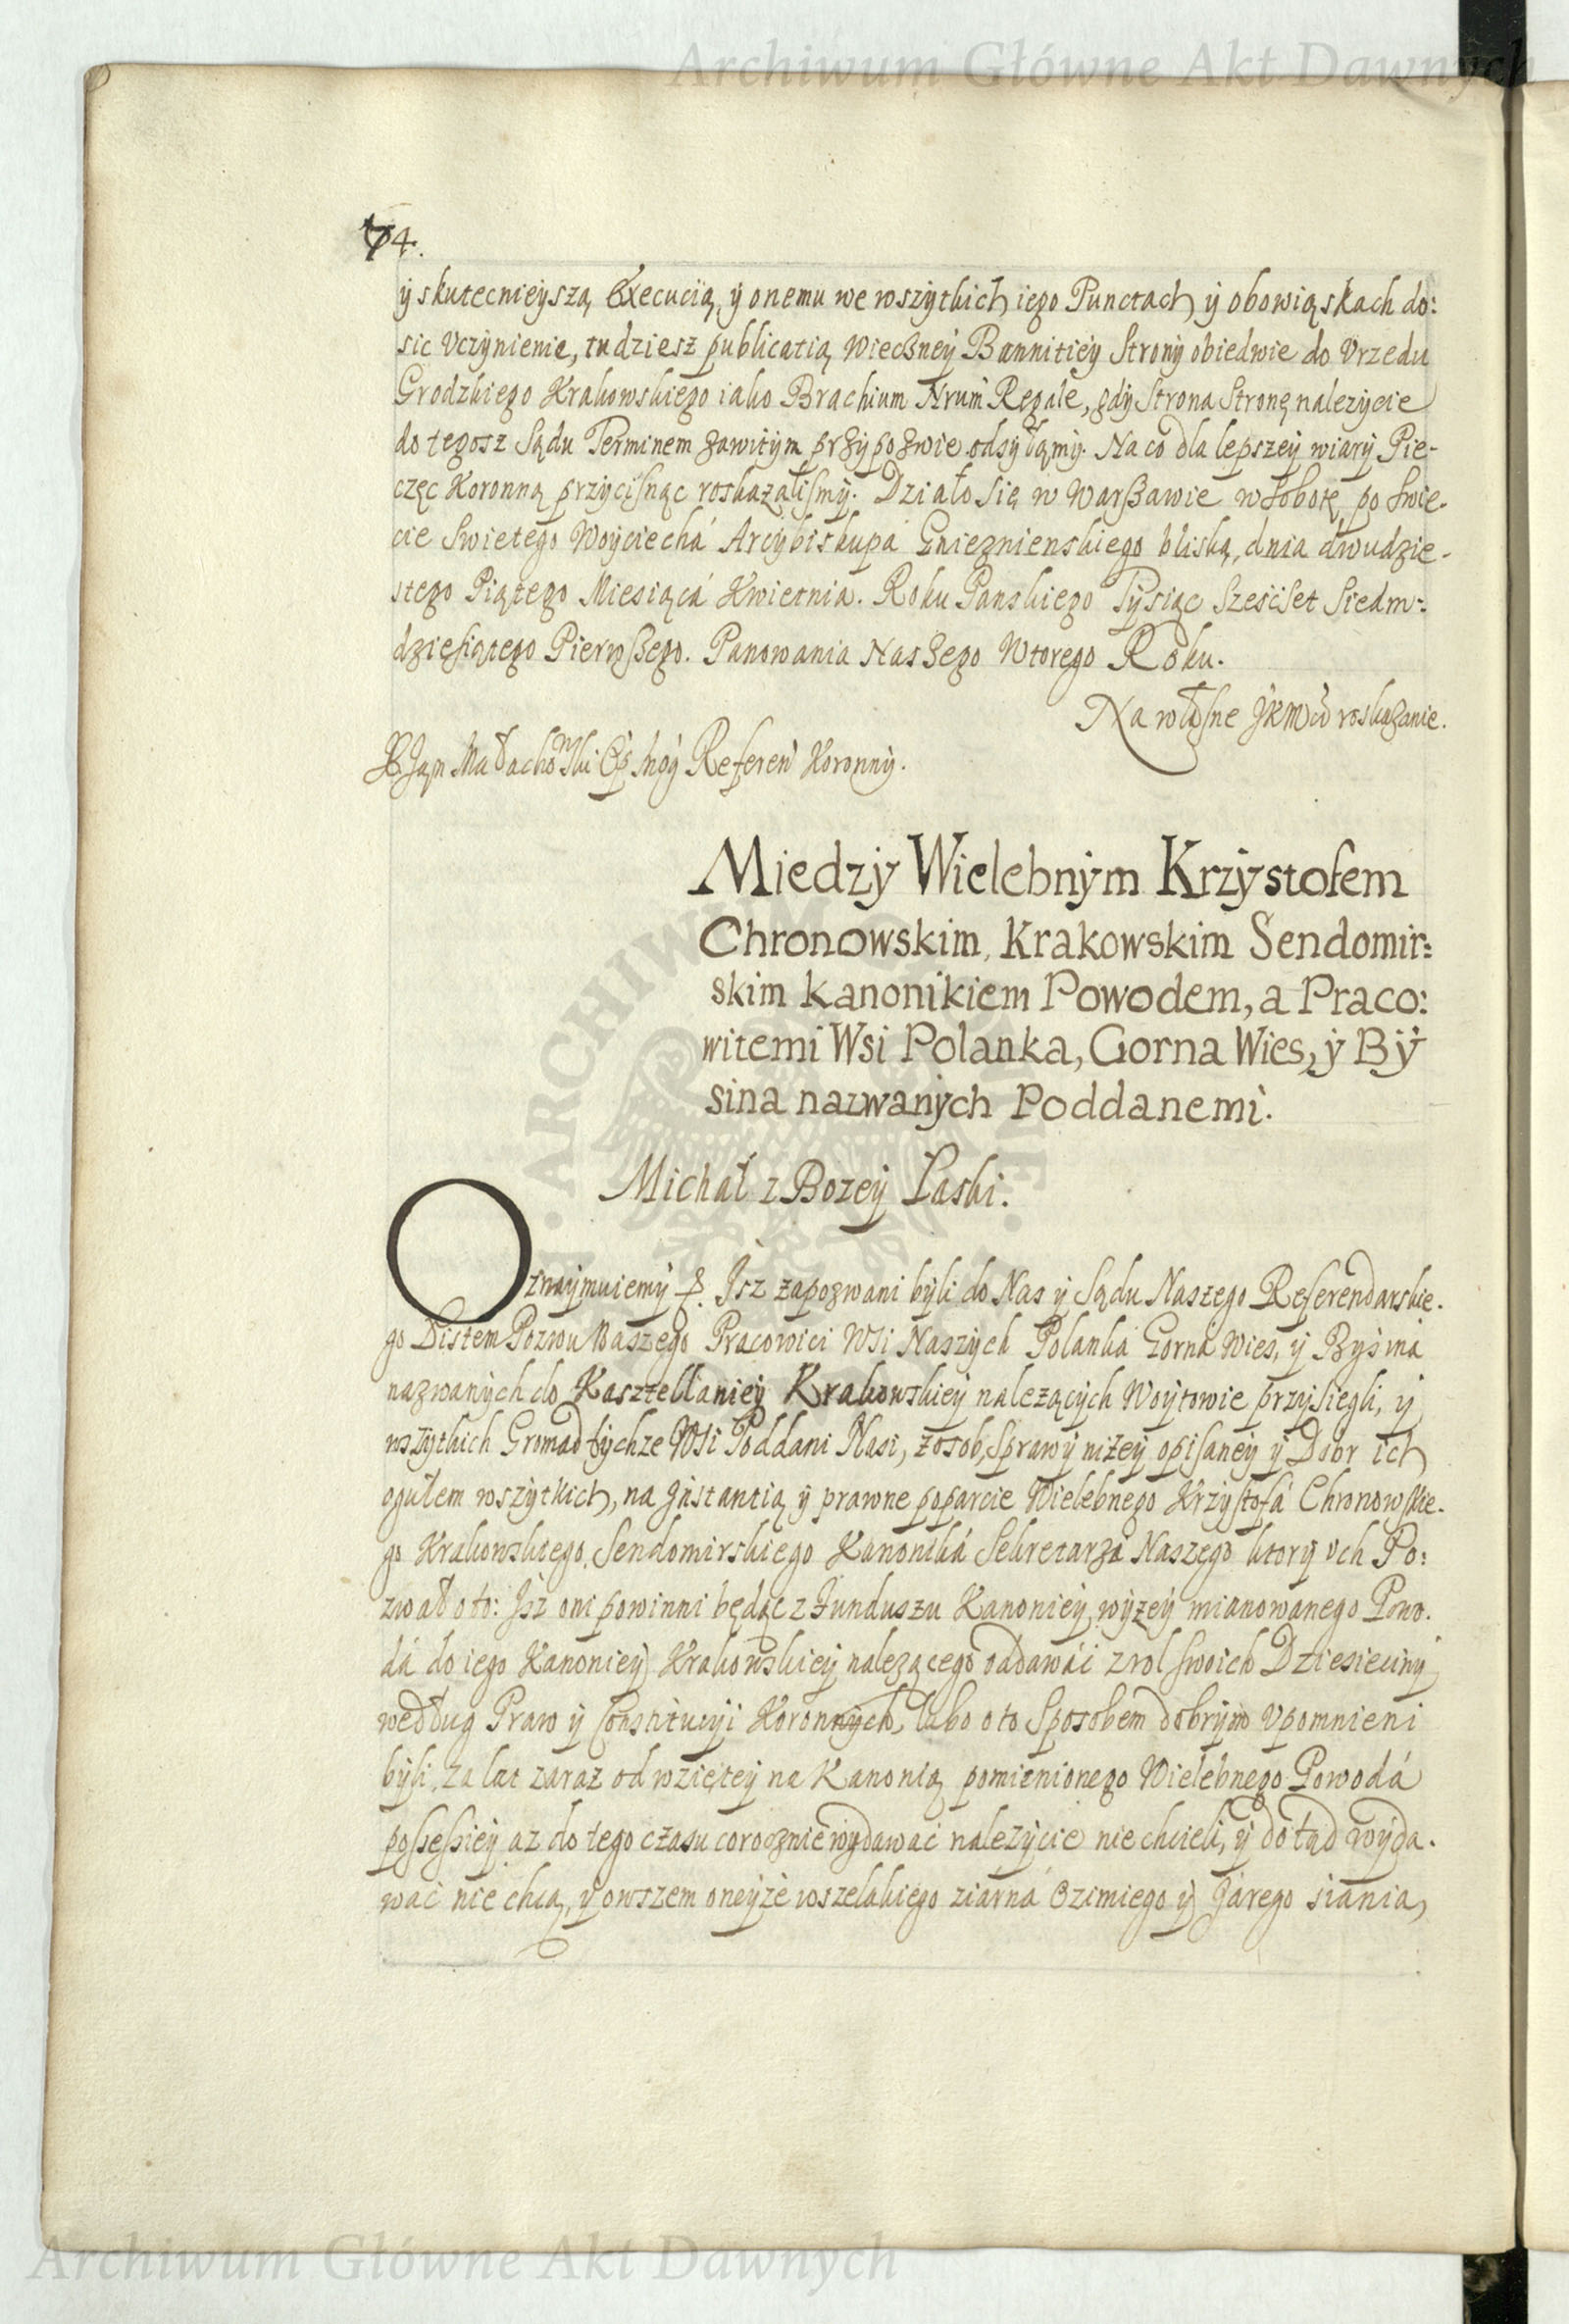 Archiwum Główne Akt Dawnych
74.
ÿ skutecznieÿszą Execucią, ÿ onemu we wszÿtkich iego Punctach ÿ obowiąskach do:
sic Vczÿnienie, tudziesz publicatią Wieczneÿ Bannitieÿ Stronÿ obiedwie do Vrzedu
Grodzkiego Krakowskiego iako Brachium Nrum Regale, gdÿ Strona Stronę nalezÿcie
do tegosz Sądu Terminem zawitÿm przÿpozwie odsÿłąmÿ. Na co dla lepszeÿ wiarÿ Pie-
częc Koronną przÿcisnąc roskazalismÿ. Działo się w Warszawie w Sobotę po Swie-
cie Swietego Woÿciechá Arcÿbiskupa Gnieznienskiego bliską, dnia dwudzie-
stego Piątego Miesiącá Kwietnia. Roku Panskiego Tÿsiąc Sześcset Siedm:
dziesiątego Pierwszego. Panowania Naszego Wtorego Roku.
Na własne JKMći roskazanie.
X. Jan Małachowski Referen Koronnÿ.
Miedzÿ Wielebnÿm Krzÿstofem
Chronowskim, Krakowskim Sendomir:
skim kanonikiem Powodem, a Praco:
witemi Wsi Polanka, Gorna Wies, ÿ Bÿ
sina nazwanÿch Poddanemi.
Michał z Bozeÿ Łaski.
Oznaÿmuiemÿ p. Jsz zapozwani bÿli do Nas ÿ Sądu Naszego Referendarskie-
go Listem Pozwu Naszego Pracowici Wsi Naszÿch Polanka Gorna Wies, ÿ Bÿsina
nazwanÿch do Kasztellanieÿ Krakowskieÿ nalezącÿch Woÿtowie przÿsiegli, ÿ
wszÿtkich Gromad tÿchze Wsi Poddani Nasi, z osob, Sprawÿ nizeÿ opisaneÿ ÿ Dobr ich
ogułem wszÿtkich, na Jnstantią ÿ prawne poparcie Wielebnego Krzÿstofá Chronowskie-
go Krakowskiego, Sendomirskiego Kanoniká Sekretarza Naszego ktorÿ ych Po:
zwał oto: Jsz oni powinni będąc z Funduszu Kanonieÿ wÿzeÿ mianowanego Powo-
dá do iego Kanonieÿ Krakowskieÿ nalezącego oddawáć z rol swoich Dziesiecinÿ
według Praw ÿ Constitucÿi Koronnÿch, lubo oto Sposobem dobrÿm Vpomnieni
bÿli, za lat zaraz od wzieteÿ na Kanonią pomienionego Wielebnego Powodá
possessieÿ az do tego czasu corocznie wÿdawać nalezÿcie nie chcieli, ÿ dotąd wÿda-
wać nie chcą, ÿ owszem oneÿże wszelakiego ziárná Ozimiego ÿ Járego siania,
Archiwum Główne Akt Dawnych